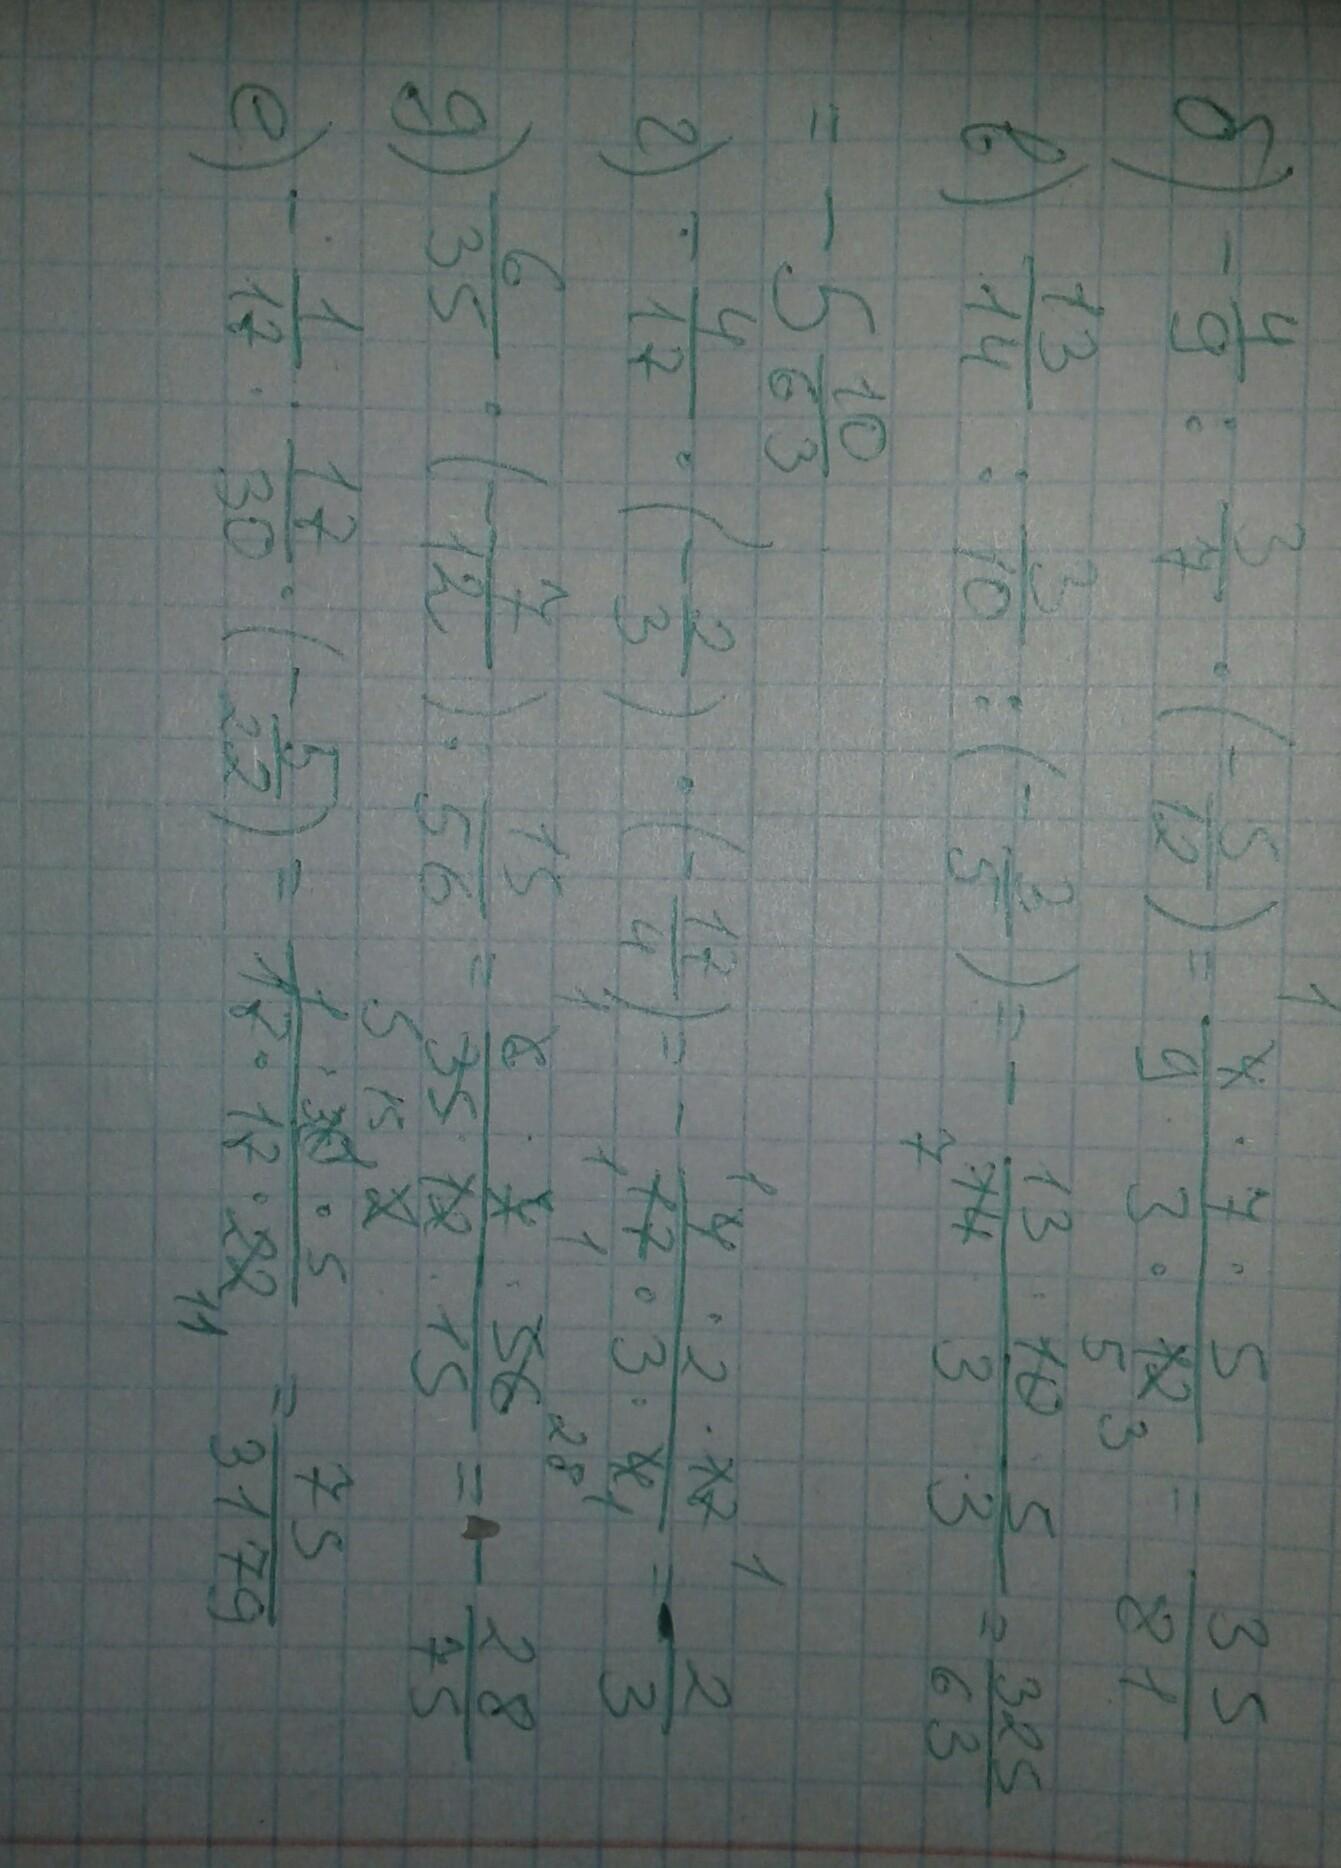 б) -4/9 : 3/7 · (-5/12) = 4 · 7 · 5 / 9 · 3 · 12 = 35/81
1 3
в) 13/14 : 3/10 : (-3/5) = - 13 · 10 · 5 / 14 · 3 · 3 = 325/63
7 5
= - 5 10/63
г) - 4/17 · (-2/3) · (-17/4) = - 4 · 2 · 17 / 17 · 3 · 4 = - 2/3
1 1 1 1
д) 6/35 · (-7/12) : 15/56 = 6 · 7 · 56 / 35 · 12 · 15 = - 28/75
1 28 5 2
е) - 1/17 : 17/30 · (-5/22) = 1 · 30 · 5 / 17 · 17 · 22 = 75/3179
15 11